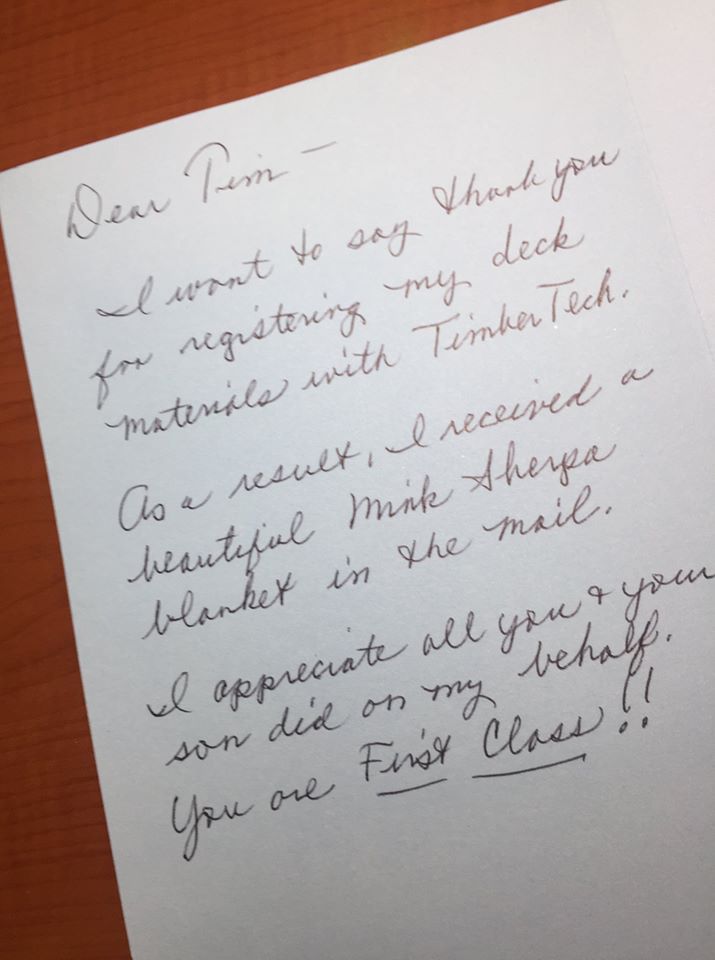 Dear Tim —
I want to say thank you
for registering my deck
materials with TimberTech.
As a result, I received a
beautiful Mink Sherpa
blanket in the mail.
I appreciate all you & your
son did on my behalf.
You are First Class!!